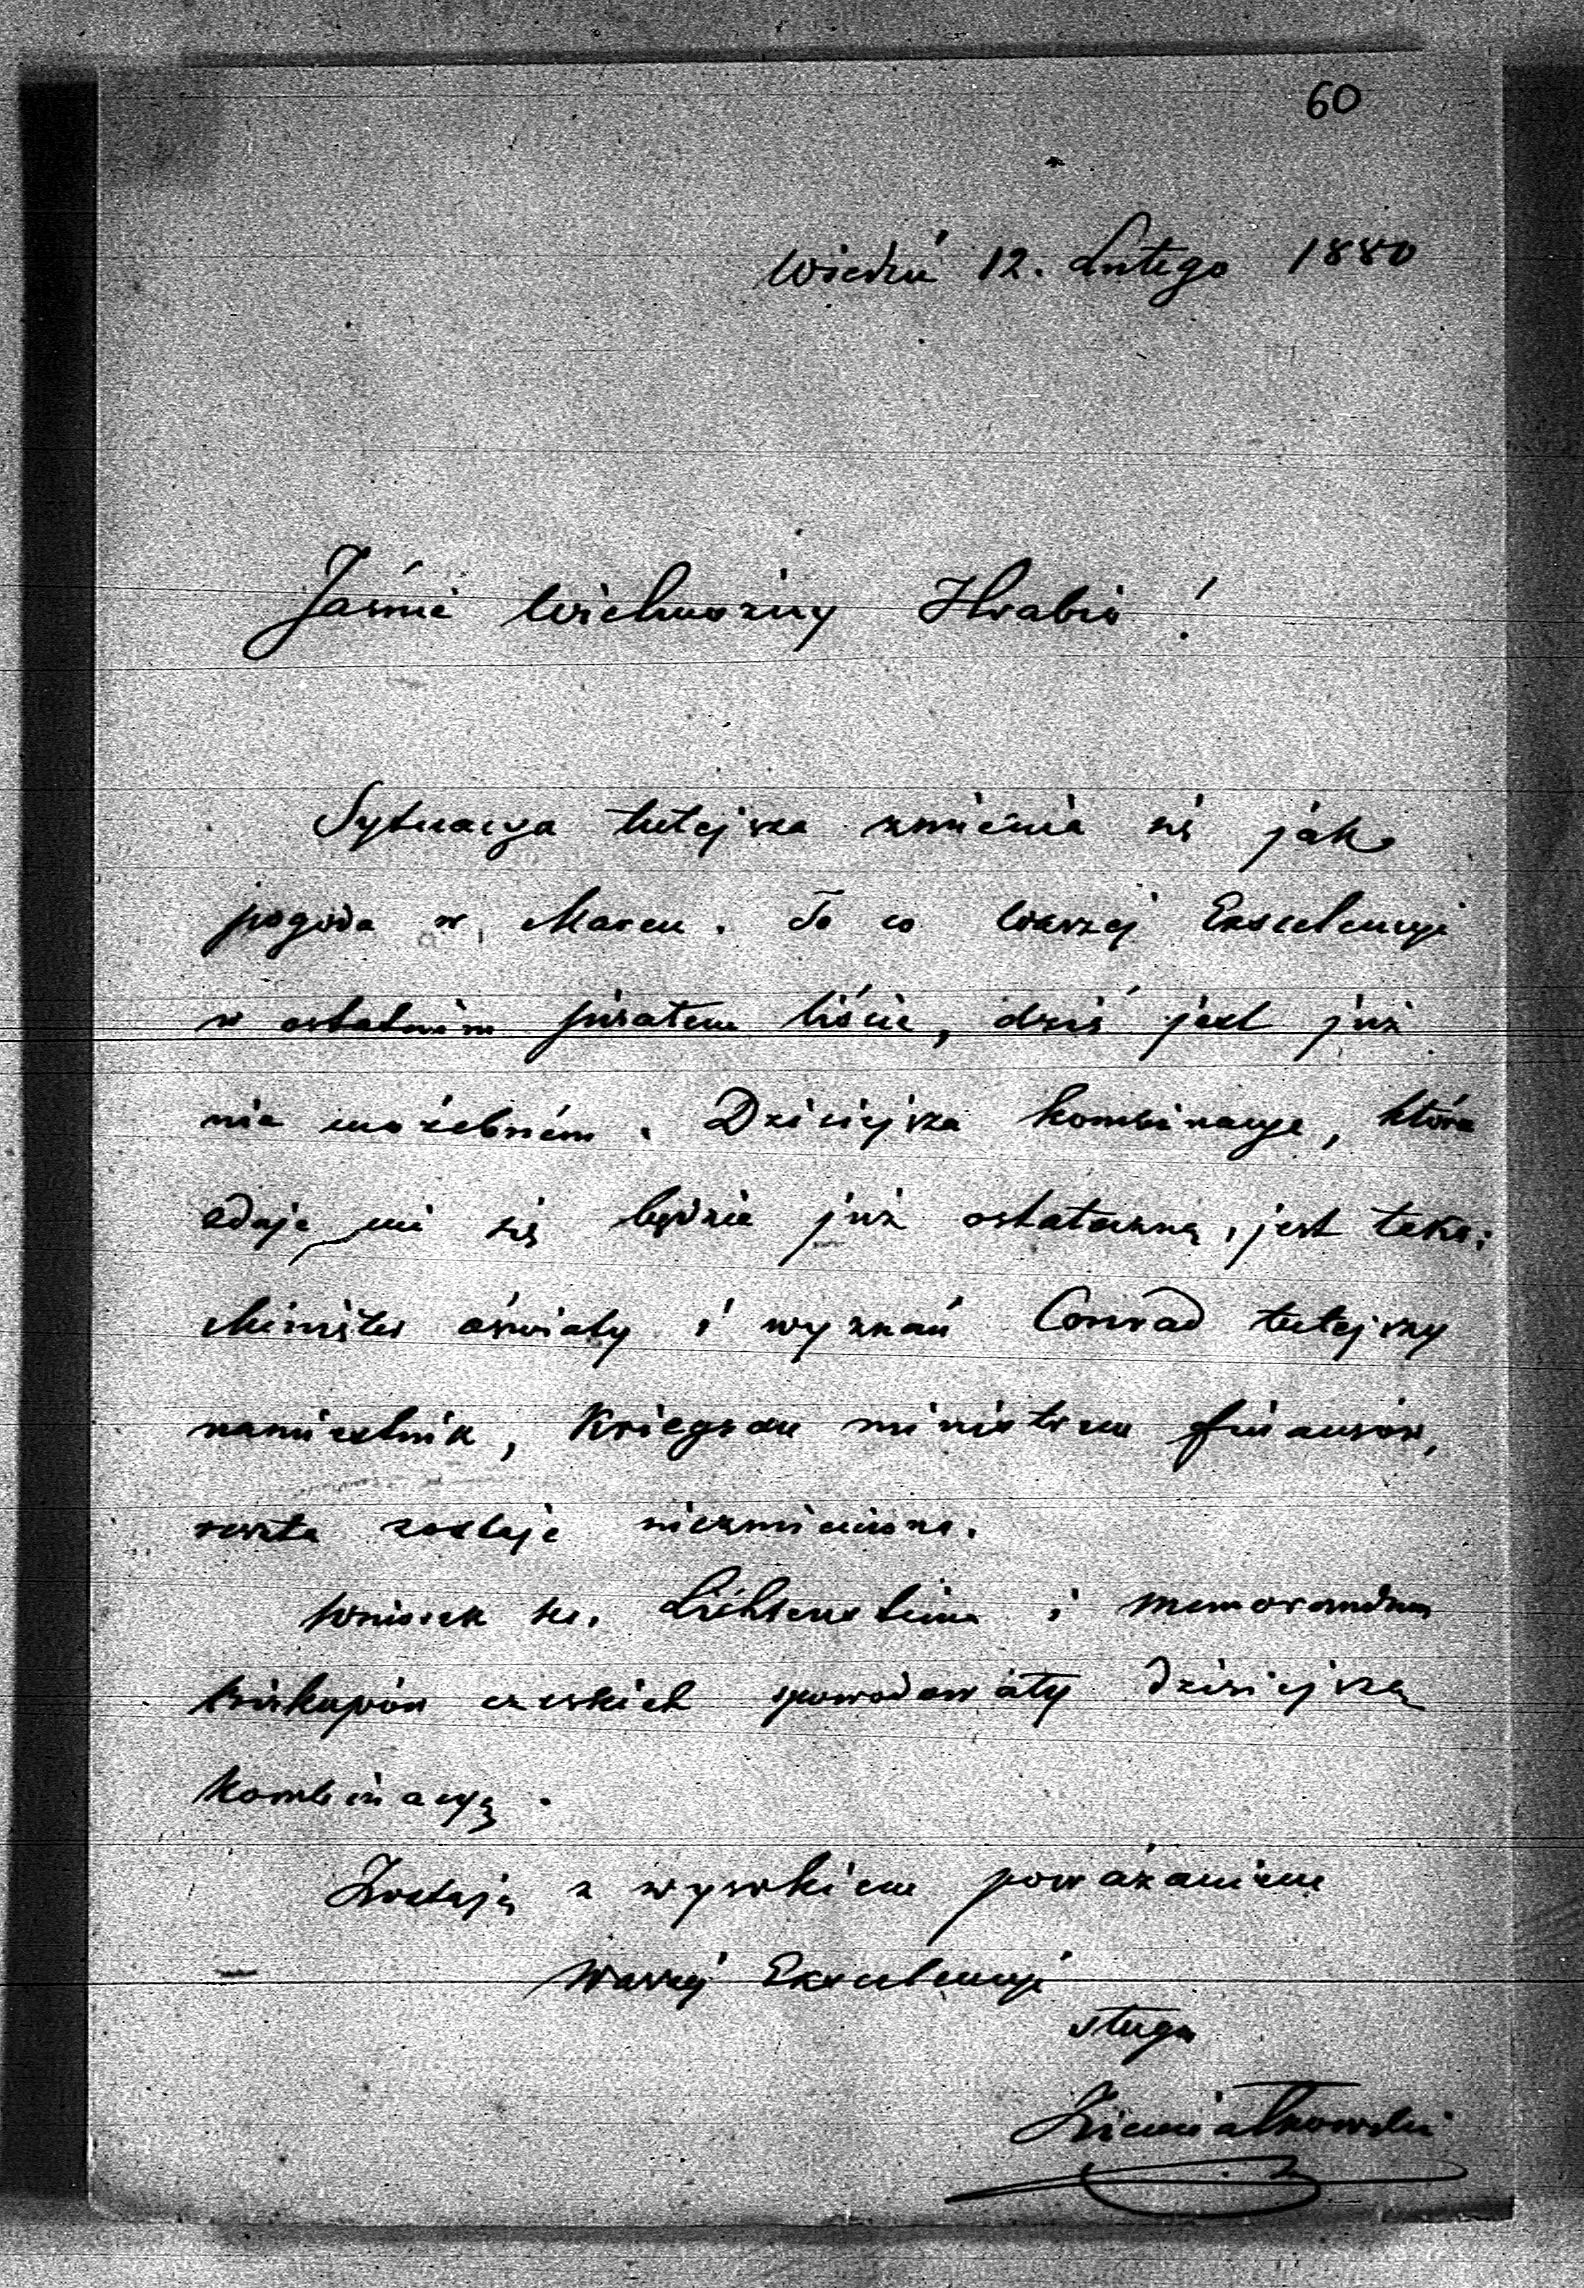 60
Wiedeń 12. Lutego 1880
Jaśnie Wielmożny Hrabio!
Sytuacya tutejsza zmienia się jak
pogoda w Marcu. To co Waszej Excelencyi
w ostatnim pisałem liście, dziś jest już
nie możebném. Dzisiejsza kombinacya, która
zdaje mi się będzie już ostateczną, jest taka:
Minister oświaty i wyznań Conrad tutejszy
namiestnik, Kriegsau ministrem finansów,
reszta zostaje niezmieniona.
Wniosek ks. Lichtensteina i memorandum
biskupów czeskich spowodowały dzisiejszą
kombinacyą.
Zostaję z wysokiem poważaniem
Waszej Excelencyi
sługa
Ziemiałkowski